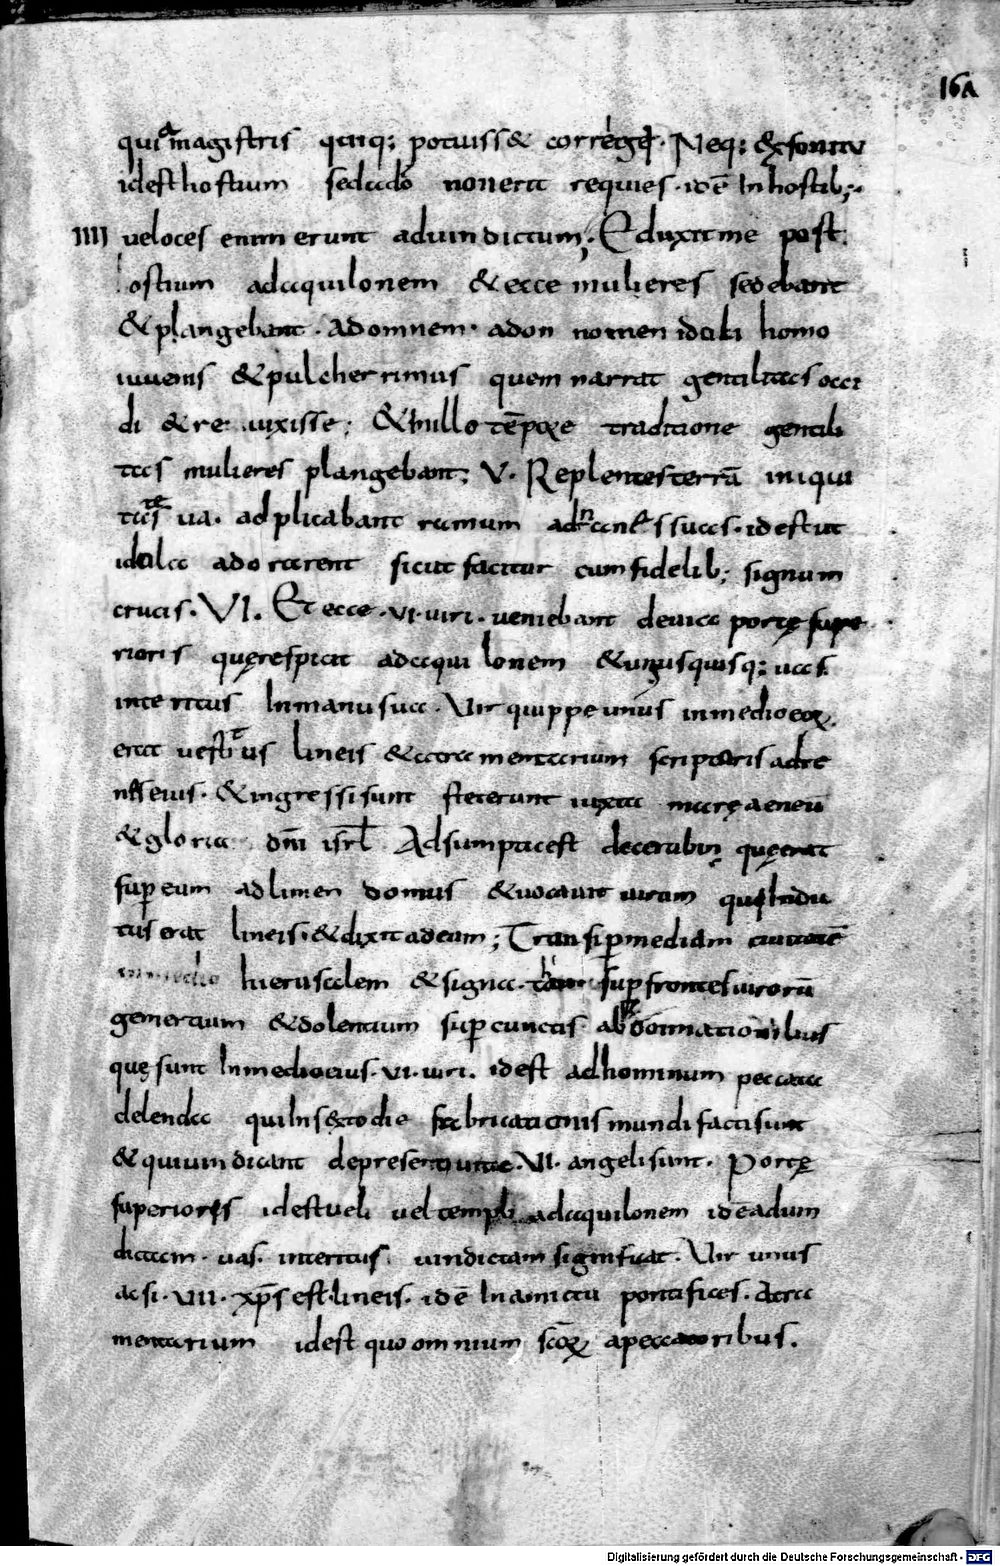 16a
quia magistris quiq; potuiss& corrège. Neq; &
idest hostium sed ado non erat requies · idē In hostib;
IIII veloces enim erunt ad vindictam; Eduxit me post
ostium ad aquilonem & ecce mulieres sedebant
& plangebant · Ad omnem · adon nomen idoli homo
iuvenis & pulcherrimus quem narrat gentilitas occi
di & re vixisse; & nullo tēpore traditione gentili
tatis mulieres plangebant; V. Replentes terrā iniqui
tate sua · adplicabant ramum ad nares suas · id est ut
idola adorarent sicut facitur cum fidelib; signum
crucis · VI. Et ecce · vi · viri · veniebant de via portę supe
rioris quę respicit ad aquilonem & unusquisq; vas
interitus In manu sua · Vir quippe unus in medio eoꝝ
erat vestitus lineis & atramentarium scriptoris ad re
nes eius · & ingressi sunt steterunt iuxta marę aeneū
& gloria dn̄i isrl̄ Adsumpta est de cerubin quę erat
sup eum ad limen domus & vocavit virum qui Indu
tus erat lineis · & dixit ad eum; Transi p mediam civitatē
in medio hierusalem & signa · thau sup frontes virorū
gementium & dolentium sup cunctis abominationibus
quę sunt In medio eius · vi · viri · id est ad hominum peccata
delenda qui In sexto die fabricationis mundi facti sunt
& qui vindicant de presenti · VI · angeli sunt · Portę
superioris id est veli vel templi ad aquilonem idē ad iu
dicium · vas · interitus vindictam significat · Vir unus
ac si · VII · xp̄s est · lineis · idē In amictu pontifices · Atra
mentarium id est quo omnium sc̄oꝝ a peccatoribus.
Digitalisierung gefördert durch die Deutsche Forschungsgemeinschaft - DFG